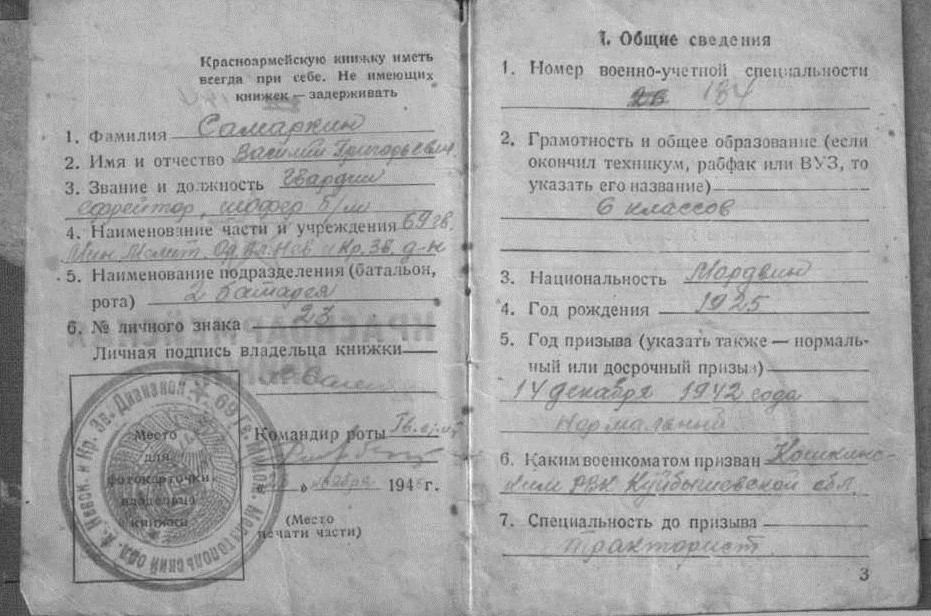 Красноармейскую книжку иметь
всегда при себе. Не имеющих
книжек — задерживать
1. Фамилия Самаркин
2. Имя и отчество Василий Григорьевич
3. Звание и должность Гвардии
ефрейтор, шофер
4. Наименование части и учреждения 69 гв.
Мин. Мелит. Ор. Ал. Нев. и Кр. Зв. д-н
5. Наименование подразделения (батальон,
рота) 2 батарея
6. № личного знака 23
Личная подпись владельца книжки
Место
для
фотокарточки
владельца
книжки
69 Гв. Мином. Мелитопольский орд. А. Невск. и Кр. Зв. Дивизион
Командир роты Гв.
ноября 194 г.
(Место
печати части)
I. Общие сведения
1. Номер военно-учетной специальности
26 184
2. Грамотность и общее образование (если
окончил техникум, рабфак или ВУЗ, то
указать его название)
6 классов
3. Национальность Мордвин
4. Год рождения 1925
5. Год призыва (указать также — нормаль-
ный или досрочный призыв)
14 декабря 1942 года
Нормальный
6. Каким военкоматом призван Кошкинс-
ким РВК Куйбышевской обл.
7. Специальность до призыва
Тракторист
3